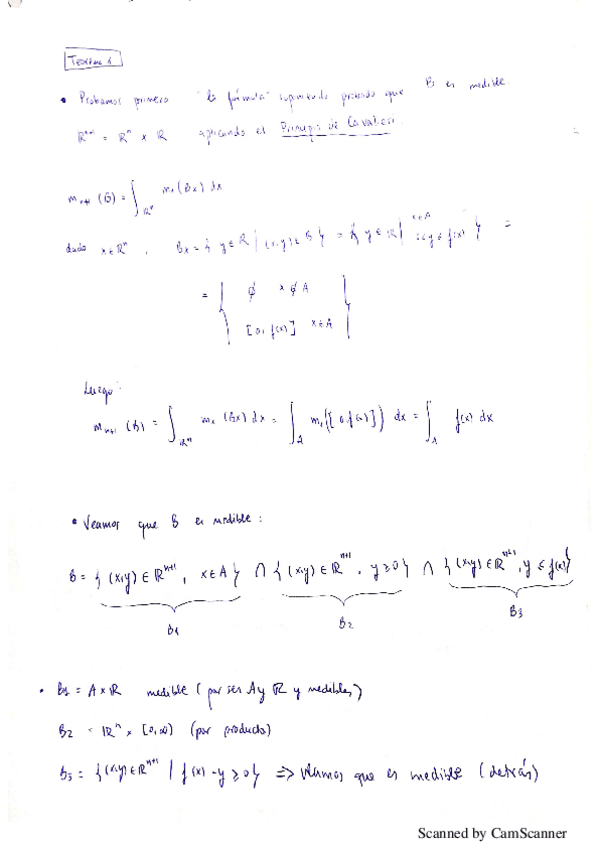 Teorema 1
• Probamos primero "la fórmula" suponiendo probado que B es medible.
R^{n+1} = R^n x R aplicando el Principio de Cavalieri.
m_{n+1} (B) = ∫_{R^n} m_1 (B_x) dx
dado x ∈ R^n, B_x = { y ∈ R | (x,y) ∈ B } = { y ∈ R | x ∈ A 0 ≤ y ≤ f(x) } =
= { ∅ x ∉ A
[0, f(x)] x ∈ A }
Luego:
m_{n+1} (B) = ∫_{R^n} m_1 (B_x) dx = ∫_A m_1([0, f(x)]) dx = ∫_A f(x) dx
• Veamos que B es medible:
B = { (x,y) ∈ R^{n+1}, x ∈ A } ∩ { (x,y) ∈ R^{n+1}, y ≥ 0 } ∩ { (x,y) ∈ R^{n+1}, y ≤ f(x) }
B_1 B_2 B_3
• B_1 = A x R medible (por ser A y R y medibles)
B_2 = R^n x [0, ∞) (por producto)
B_3 = { (x,y) ∈ R^{n+1} | f(x) - y ≥ 0 } => veamos que es medible (detrás)
Scanned by CamScanner